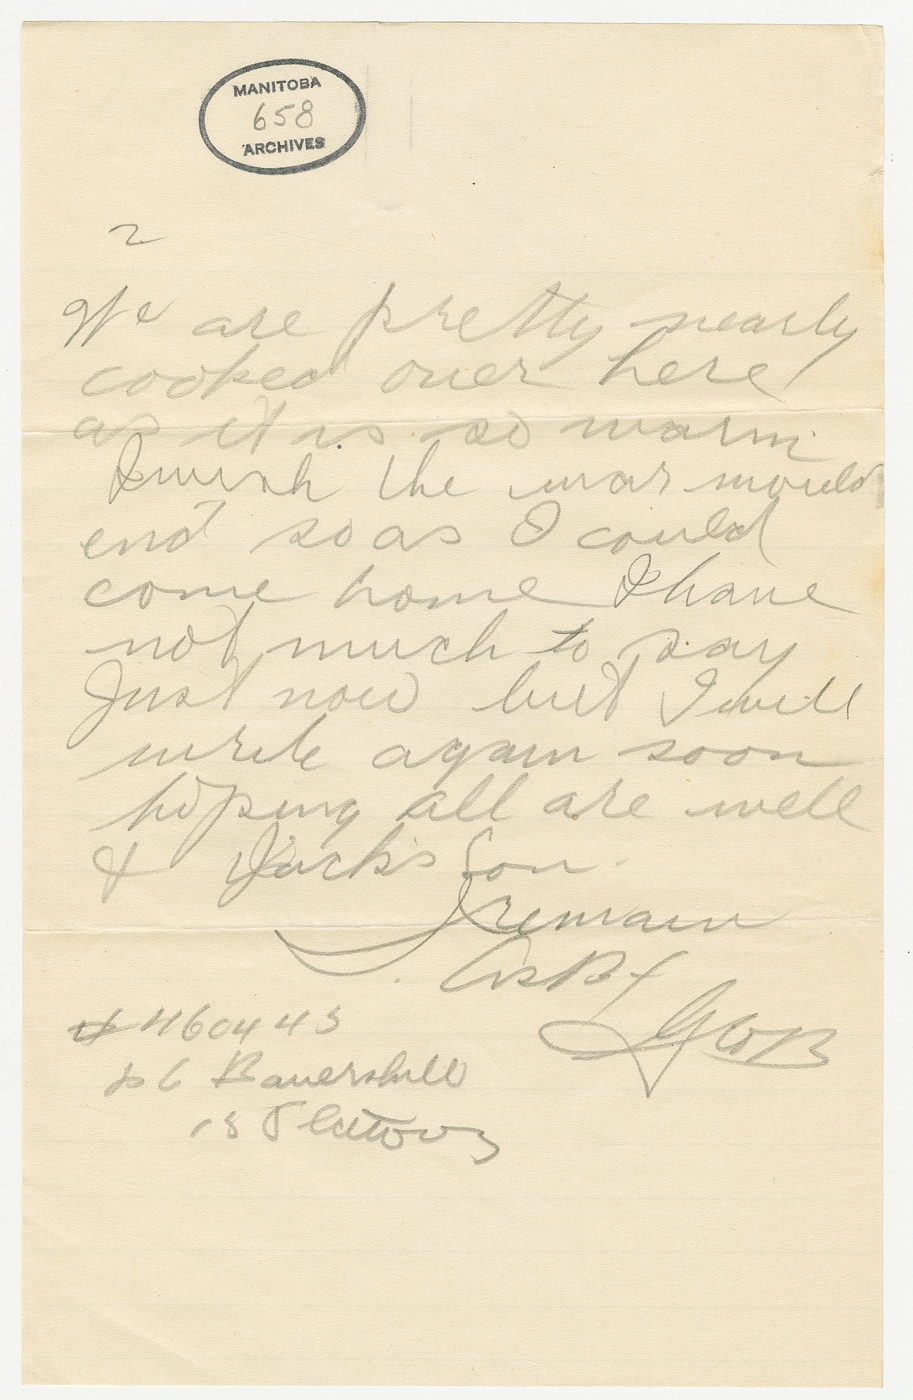 MANITOBA
658
ARCHIVES
2
We are pretty nearly
cooked over here
as it is so warm
I wish the war would
end so as I could
come home I have
not much to say
Just now but I will
write again soon
hoping all are well
& Jack's Son.
I remain
GWB
# 460443
G Battershill
18 Platoon